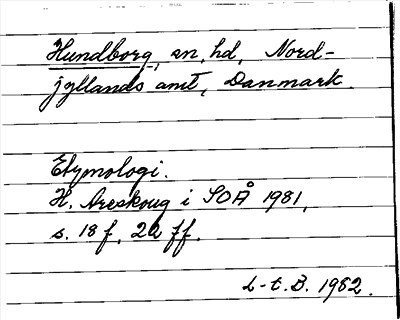 Hundborg, sn, hd, Nord-
jyllands amt, Danmark.
Etymologi.
H. Areskoug i SOÅ 1981,
s. 18 f, 22 ff.
L-t.B. 1982.